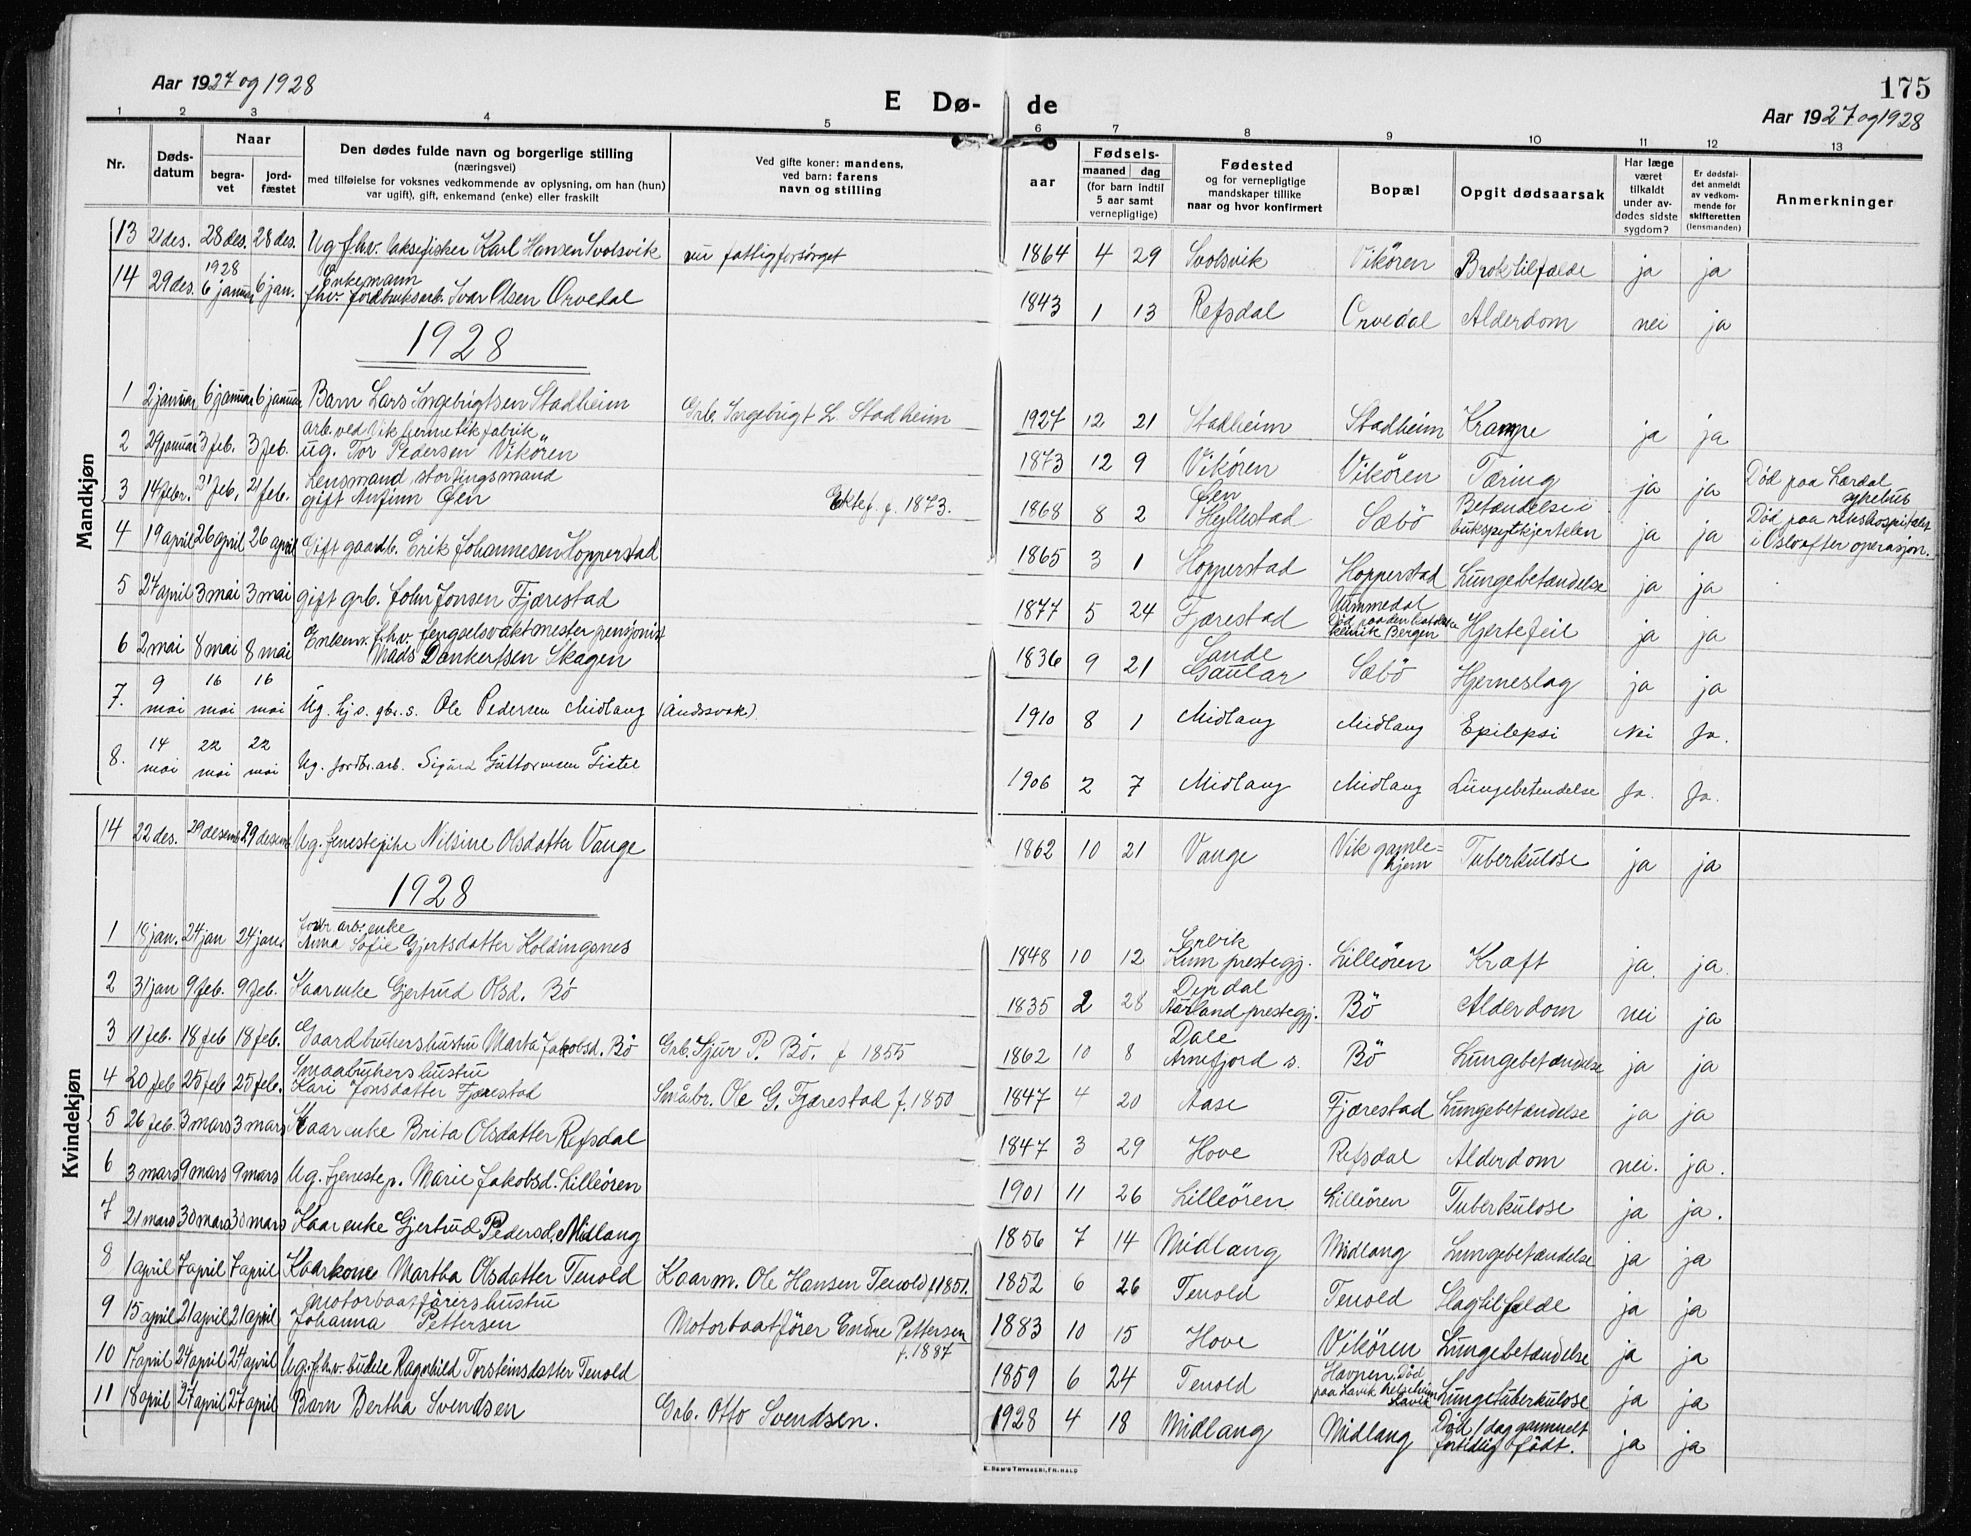 175
Aar 1927 og 1928
E Dø- de
Aar 1927 og 1928
1 2 3 4 5 6 7 8 9 10 11 12 13
Nr.
Døds-
datum
Naar
begra-
vet
jord-
fæstet
Den dødes fulde navn og borgerlige stilling
(næringsvei)
med tilføielse for voksnes vedkommende av oplysning, om han (hun)
var ugift), gift, enkemand (enke) eller fraskilt
Ved gifte koner: mandens,
ved barn: farens
navn og stilling
aar
Fødsels-
maaned dag
(for barn indtil
5 aar samt
vernepligtige)
Fødested
og for vernepligtige
mandskaper tillike
naar og hvor konfirmert
Bopæl
Opgit dødsaarsak
Har læge
været
tilkaldt
under av-
dødes sidste
sygdom?
Er dødsfal-
det anmeldt
av vedkom-
mende for
skifteretten
(lensmanden)
Anmerkninger
Mandkjøn
13 21 des. 28 des. 28 des. Ug. fhv. laksefisker Karl Hansen Svolsvik nu fattigforsørget 1864 4 29 Svolsvik Vikören Broktilfælde ja ja
1928 Enkemann
14 29 des. 6 januar 6 jan. fhv. jordbruksarb. Ivar Olsen Orvedal 1843 1 13 Refsdal Orvedal Alderdom nei ja
1928
1 2 januar 6 januar 6 januar Barn Lars Ingebrigtsen Stadheim Grb. Ingebrigt L. Stadheim 1927 12 21 Stadheim Stadheim Krampe ja ja
arb. ved Vik hermetikfabrik
2 29 januar 3 feb. 3 feb. ug. Tor Pedersen Vikören 1873 12 9 Vikören Vikören Tæring ja ja Død paa Lærdal
sykehus
Lensmand, stortingsmand Øen Betændelse i Død paa rikshospitalet
3 14 febr. 21 feb. 21 feb. gift Anfinn Øen Ektef. f. 1873. 1868 8 2 Hyllestad Sæbö bukspytkjertelen ja ja i Oslo efter operasjon.
4 19 april 26 april 26 april Gift gaardb. Erik Johannesen Hopperstad 1865 3 1 Hopperstad Hopperstad Lungebetændelse ja ja
5 27 april 3 mai 3 mai gift grb. John Jonsen Fjærestad 1877 5 24 Fjærestad Hjertefeil ja ja
Død paa den
Bergen
Enkem. fhv. fengselsvaktmester pensjonist Sande
6 2 mai 8 mai 8 mai Mads Dankertsen Skagen 1836 9 21 Gaular Sæbö Hjerneslag ja ja
7. 9 mai 16 mai 16 mai Ug. hj. s. gbr. s. Ole Pedersen Midlang (Åndssvak) 1910 8 1 Midlang Midlang Epilepsi Nei Ja.
8. 14 mai 22 mai 22 mai Ug. jordbr. arb. Sigurd Guttormsen Tistel 1906 2 7 Midlang Midlang Lungebetendelse Ja. Ja.
Kvindekjøn
14 22 des. 29 desemb. 29 desemb. Ug. tjenestepike Nilsine Olsdatter Vange 1862 10 21 Vange Vik gamle=
hjem Tuberkulose ja ja
1928
jordbr. arb. enke
1 18 jan. 24 jan 24 jan. Anna Sofie Gjertsdatter Holdingsnes 1848 10 12 Kinn prestegj. Lilleören Kræft ja. ja.
Dyrdal
2 31 jan 9 feb. 9 feb. Kaarenke Gjertrud Olsd. Bö 1835 2 28 Aurland prestegj. Bö Alderdom nei ja
Dale
3 11 feb. 18 feb 18 feb. Gaardbrukershustru Marta Jakobsd. Bö Grb. Sjur P. Bö. f 1855 1862 10 8 Arnefjord s. Bö Lungebetændelse ja ja
Smaabrukershustru
4 20 feb 25 feb 25 feb. Kari Jonsdatter Fjærestad Småbr. Ole G. Fjærestad f. 1850 1847 4 20 Aase Fjærestad Lungebetændelse ja ja
5 26 feb. 3 mars 3 mars Kaarenke Brita Olsdatter Refsdal 1847 3 29 Hove Refsdal Alderdom nei. ja.
6 3 mars 9 mars 9 mars Ug. tjenestep. Marie Jakobsd. Lilleören 1901 11 26 Lilleören Lilleören Tuberkulose ja ja.
7 21 mars 30 mars 30 mars Kaarenke Gjertrud Pedersd. Midlang 1856 7 14 Midlang Midlang Lungebetændelse ja ja
8 1 april 7 april 7 april Kaarkone Martha Olsdatter Tenold Kaarm. Ole Hansen Tenold f 1851. 1852 6 26 Tenold Tenold Slagtilfælde ja ja
motorbaatførershustru
9 15 april 21 april 21 april Johanna Pettersen Motorbaatfører Endre Pettersen
f. 1887 1883 10 15 Hove Vikören Lungebetændelse ja ja
10 17 april 24 april 24 april Ug. fhv. budeie Ragnhild Torsteinsdatter Tenold 1859 6 24 Tenold Havnen. Død
paa Lavik helseheim
Lavik Lungetuberkulose ja ja
11 18 april 27 april 27 april Barn Bertha Svendsen Grb. Otto Svendsen. 1928 4 18 Midlang Midlang Död 1 dag gammelt
fortidlig födt. ja ja